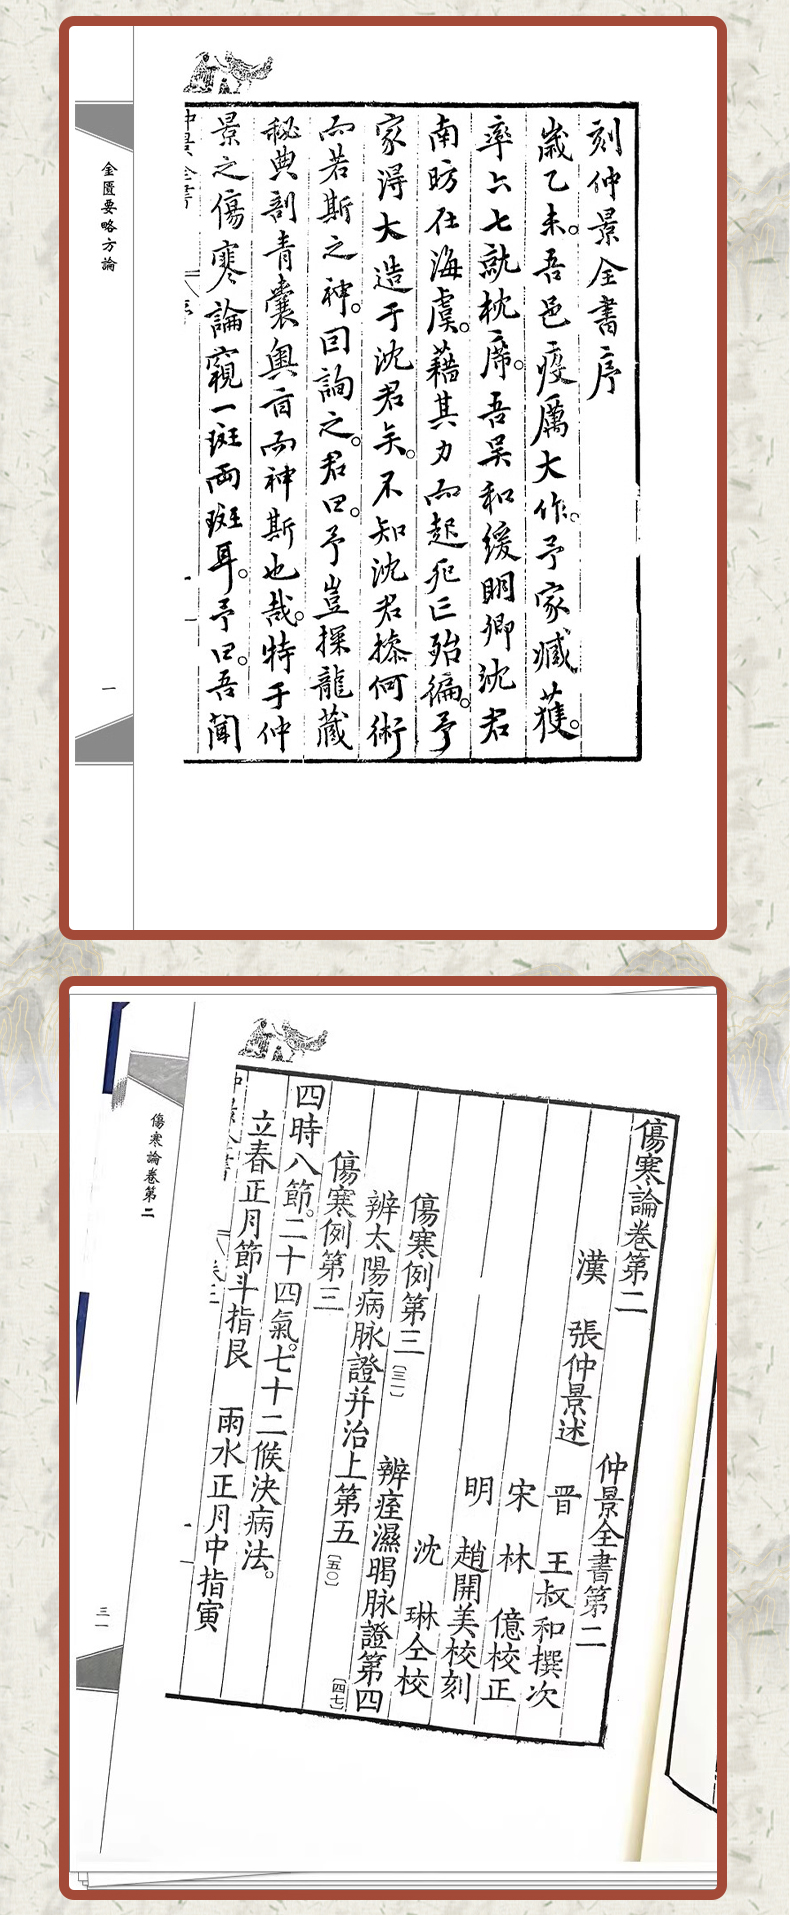 刻仲景全書序
歲乙未。吾邑疫厲大作。予家臧獲。
率六七就枕席。吾吴和緩明卿沈君
南昉在海虞。藉其力而起死亡殆徧。予
家得大造于沈君矣。不知沈君操何術
而若斯之神。因詢之。君曰。予豈探龍藏
秘典剖青囊奥旨而神斯也哉。特于仲
景之傷寒論窺一斑兩斑耳。予曰。吾聞
金匱要略方論
一
傷寒論卷第二
仲景全書第二
漢 張仲景述
晋 王叔和撰次
宋 林 億校正
明 趙開美校刻
沈 琳仝校
傷寒例第三〔三一〕
辨痓濕暍脉證第四〔四七〕
辨太陽病脉證并治上第五〔五〇〕
傷寒例第三
四時八節。二十四氣。七十二候決病法。
立春正月節斗指艮 雨水正月中指寅
傷寒論卷第二
三一